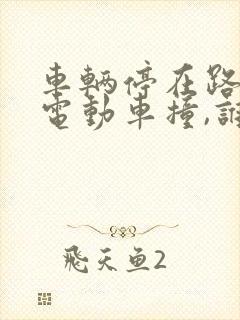 車輛停在路
電動車撞,誰
飛天鱼2